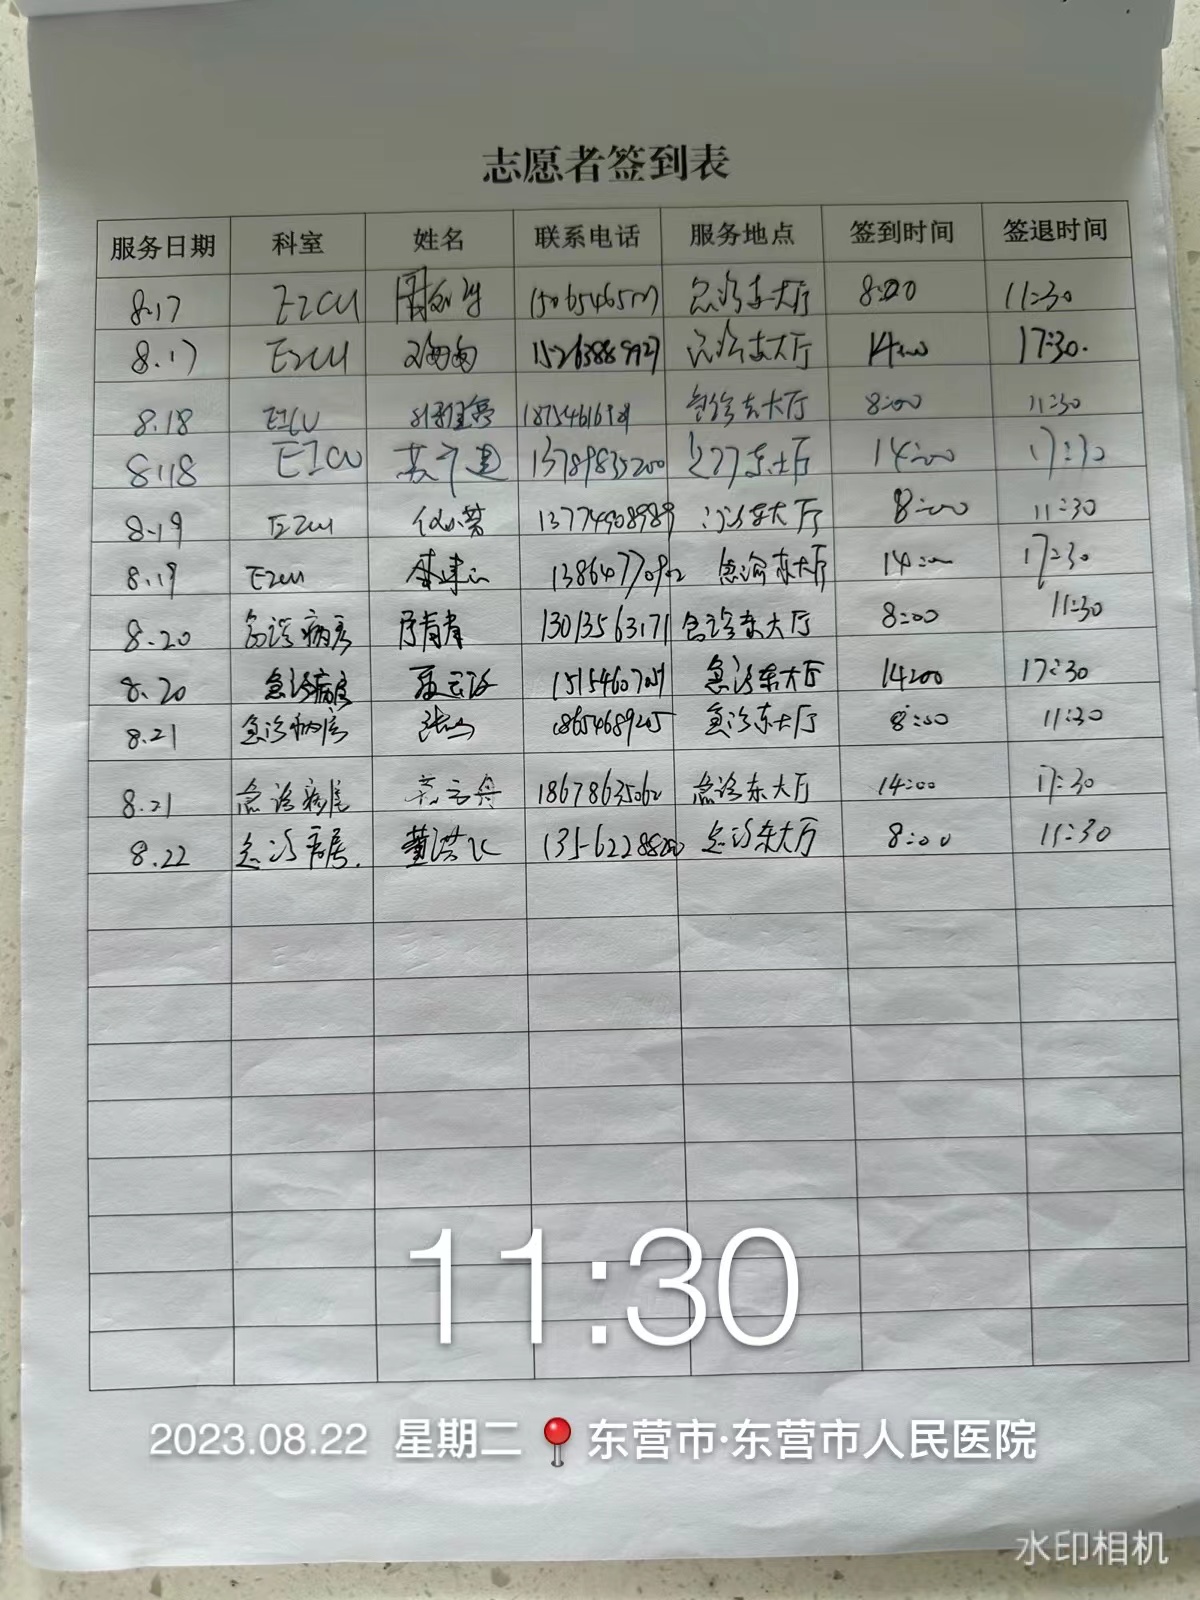 志愿者签到表
服务日期 科室 姓名 联系电话 服务地点 签到时间 签退时间
8.17 EICU 急诊东大厅 8:00 11:30
8.17 EICU 东大厅 14:00 17:30.
8.18 EICU 急诊东大厅 8:00 11:30
8.18 EICU 13789835200 东大厅 14:00 17:30
8.19 EICU 13774908989 东大厅 8:00 11:30
8.19 EICU 急诊东大厅 14:00 17:30
8.20 急诊病房 青青 13013563171 急诊东大厅 8:00 11:30
8.20 急诊病房 急诊东大厅 14:00 17:30
8.21 急诊病房 急诊东大厅 8:00 11:30
8.21 急诊病房 18678635062 急诊东大厅 14:00 17:30
8.22 急诊病房. 董洪 急诊东大厅 8:00 11:30
11:30
2023.08.22 星期二 东营市·东营市人民医院
水印相机